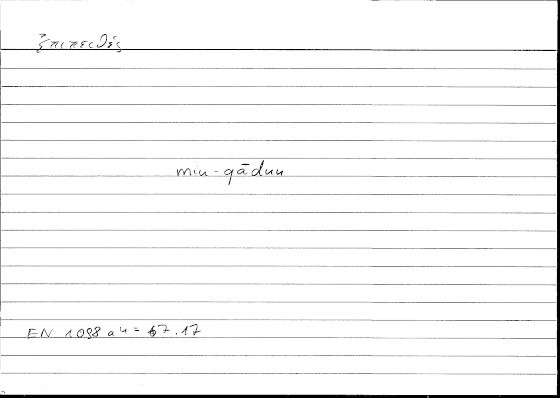 ἐπιπειθές
mun-qādun
EN 1098 a 4 = 67.17